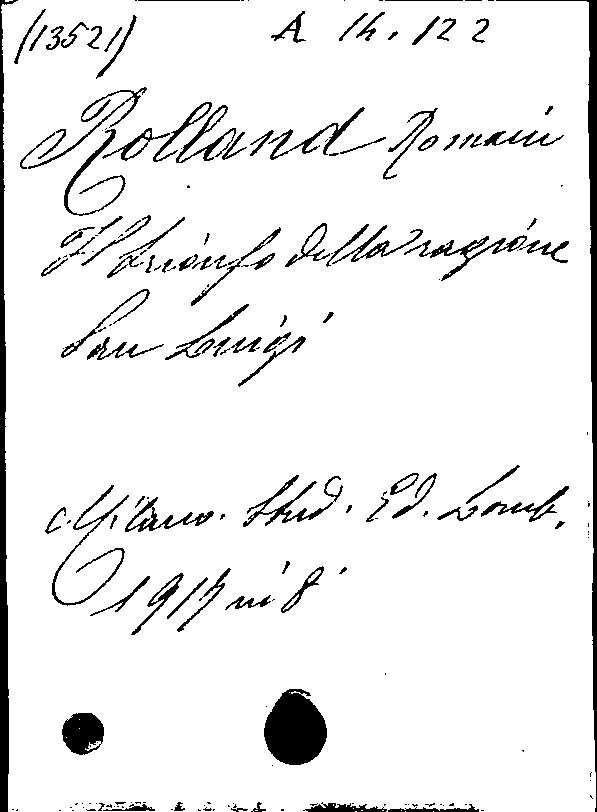 (13521) A 14. 122
Rolland Romain
Il trionfo della ragione
San Luigi
Milano. Stud. Ed. Lomb.
1917 in 8°